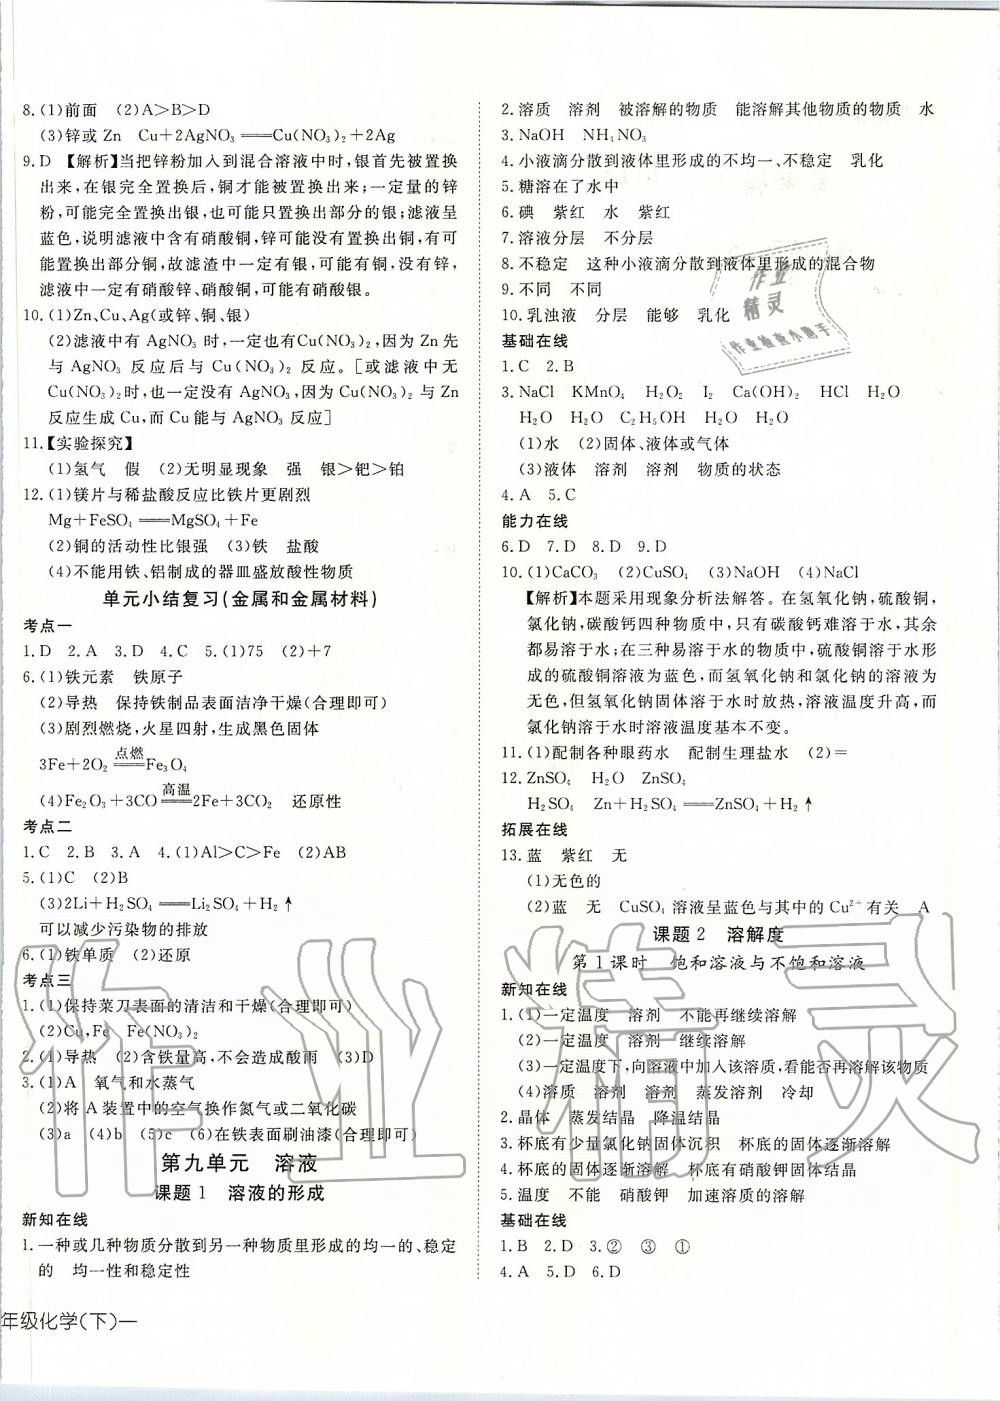 8.(1)前面 (2)A＞B＞D
(3)锌或Zn Cu+2AgNO₃══Cu(NO₃)₂+2Ag
9.D 【解析】当把锌粉加入到混合溶液中时,银首先被置换
出来,在银完全置换后,铜才能被置换出来;一定量的锌
粉,可能完全置换出银,也可能只置换出部分的银;滤液呈
蓝色,说明滤液中含有硝酸铜,锌可能没有置换出铜,有可
能置换出部分铜,故滤渣中一定有银,可能有铜,没有锌,
滤液中一定有硝酸锌、硝酸铜,可能有硝酸银。
10.(1)Zn,Cu,Ag(或锌、铜、银)
(2)滤液中有AgNO₃时,一定有Cu(NO₃)₂,因为Zn先
与AgNO₃反应后与Cu(NO₃)₂反应。[或滤液中无
Cu(NO₃)₂时,也一定没有AgNO₃,因为Cu(NO₃)₂与Zn
反应生成Cu,而Cu能与AgNO₃反应]
11.【实验探究】
(1)氢气 假 (2)无明显现象 强 银＞钯＞铂
12.(1)镁片与稀盐酸反应比铁片更剧烈
Mg+FeSO₄══MgSO₄+Fe
(2)铜的活动性比银强 (3)铁 盐酸
(4)不能用铁、铝制成的器皿盛放酸性物质
单元小结复习(金属和金属材料)
考点一
1.D 2.A 3.D 4.C 5.(1)75 (2)+7
6.(1)铁元素 铁原子
(2)导热 保持铁制品表面洁净干燥(合理即可)
(3)剧烈燃烧,火星四射,生成黑色固体
点燃
3Fe+2O₂══Fe₃O₄
高温
(4)Fe₂O₃+3CO══2Fe+3CO₂ 还原性
考点二
1.C 2.B 3.A 4.(1)Al＞C＞Fe (2)AB
5.(1)C (2)B
(3)2Li+H₂SO₄══Li₂SO₄+H₂↑
可以减少污染物的排放
6.(1)铁单质 (2)还原
考点三
1.(1)保持菜刀表面的清洁和干燥(合理即可)
(2)Cu,Fe Fe(NO₃)₂
2.(1)导热 (2)含铁量高,不会造成酸雨 (3)D
3.(1)A 氧气和水蒸气
(2)将A装置中的空气换作氮气或二氧化碳
(3)a (4)b (5)c (6)在铁表面刷油漆(合理即可)
第九单元 溶液
课题1 溶液的形成
新知在线
1.一种或几种物质分散到另一种物质里形成的均一的、稳定
的 均一性和稳定性
年级化学(下)一
2.溶质 溶剂 被溶解的物质 能溶解其他物质的物质 水
3.NaOH NH₄NO₃
4.小液滴分散到液体里形成的不均一、不稳定 乳化
5.糖溶在了水中
6.碘 紫红 水 紫红
7.溶液分层 不分层
8.不稳定 这种小液滴分散到液体里形成的混合物
9.不同 不同
10.乳浊液 分层 能够 乳化
基础在线
1.C 2.B
3.NaCl KMnO₄ H₂O₂ I₂ Ca(OH)₂ HCl H₂O
H₂O H₂O C₂H₅OH H₂O H₂O
(1)水 (2)固体、液体或气体
(3)液体 溶剂 溶剂 物质的状态
4.A 5.C
能力在线
6.D 7.D 8.D 9.D
10.(1)CaCO₃ (2)CuSO₄ (3)NaOH (4)NaCl
【解析】本题采用现象分析法解答。在氢氧化钠,硫酸铜,
氯化钠,碳酸钙四种物质中,只有碳酸钙难溶于水,其余
都易溶于水;在三种易溶于水的物质中,硫酸铜溶于水形
成的硫酸铜溶液为蓝色,而氢氧化钠和氯化钠的溶液为
无色,但氢氧化钠固体溶于水时放热,溶液温度升高,而
氯化钠溶于水时溶液温度基本不变。
11.(1)配制各种眼药水 配制生理盐水 (2)=
12.ZnSO₄ H₂O ZnSO₄
H₂SO₄ Zn+H₂SO₄══ZnSO₄+H₂↑
拓展在线
13.蓝 紫红 无
(1)无色的
(2)蓝 无 CuSO₄溶液呈蓝色与其中的Cu²⁺有关 A
课题2 溶解度
第1课时 饱和溶液与不饱和溶液
新知在线
1.(1)一定温度 溶剂 不能再继续溶解
(2)一定温度 溶剂 继续溶解
(3)一定温度下,向溶液中加入该溶质,看能否再溶解该物质
(4)溶质 溶剂 溶剂 蒸发溶剂 冷却
2.晶体 蒸发结晶 降温结晶
3.杯底有少量氯化钠固体沉积 杯底的固体逐渐溶解
4.杯底的固体逐渐溶解 杯底有硝酸钾固体结晶
5.温度 不能 硝酸钾 加速溶质的溶解
基础在线
1.B 2.D 3.② ③ ①
4.A 5.D 6.D
作业
精灵
作业检查小助手
作业精灵